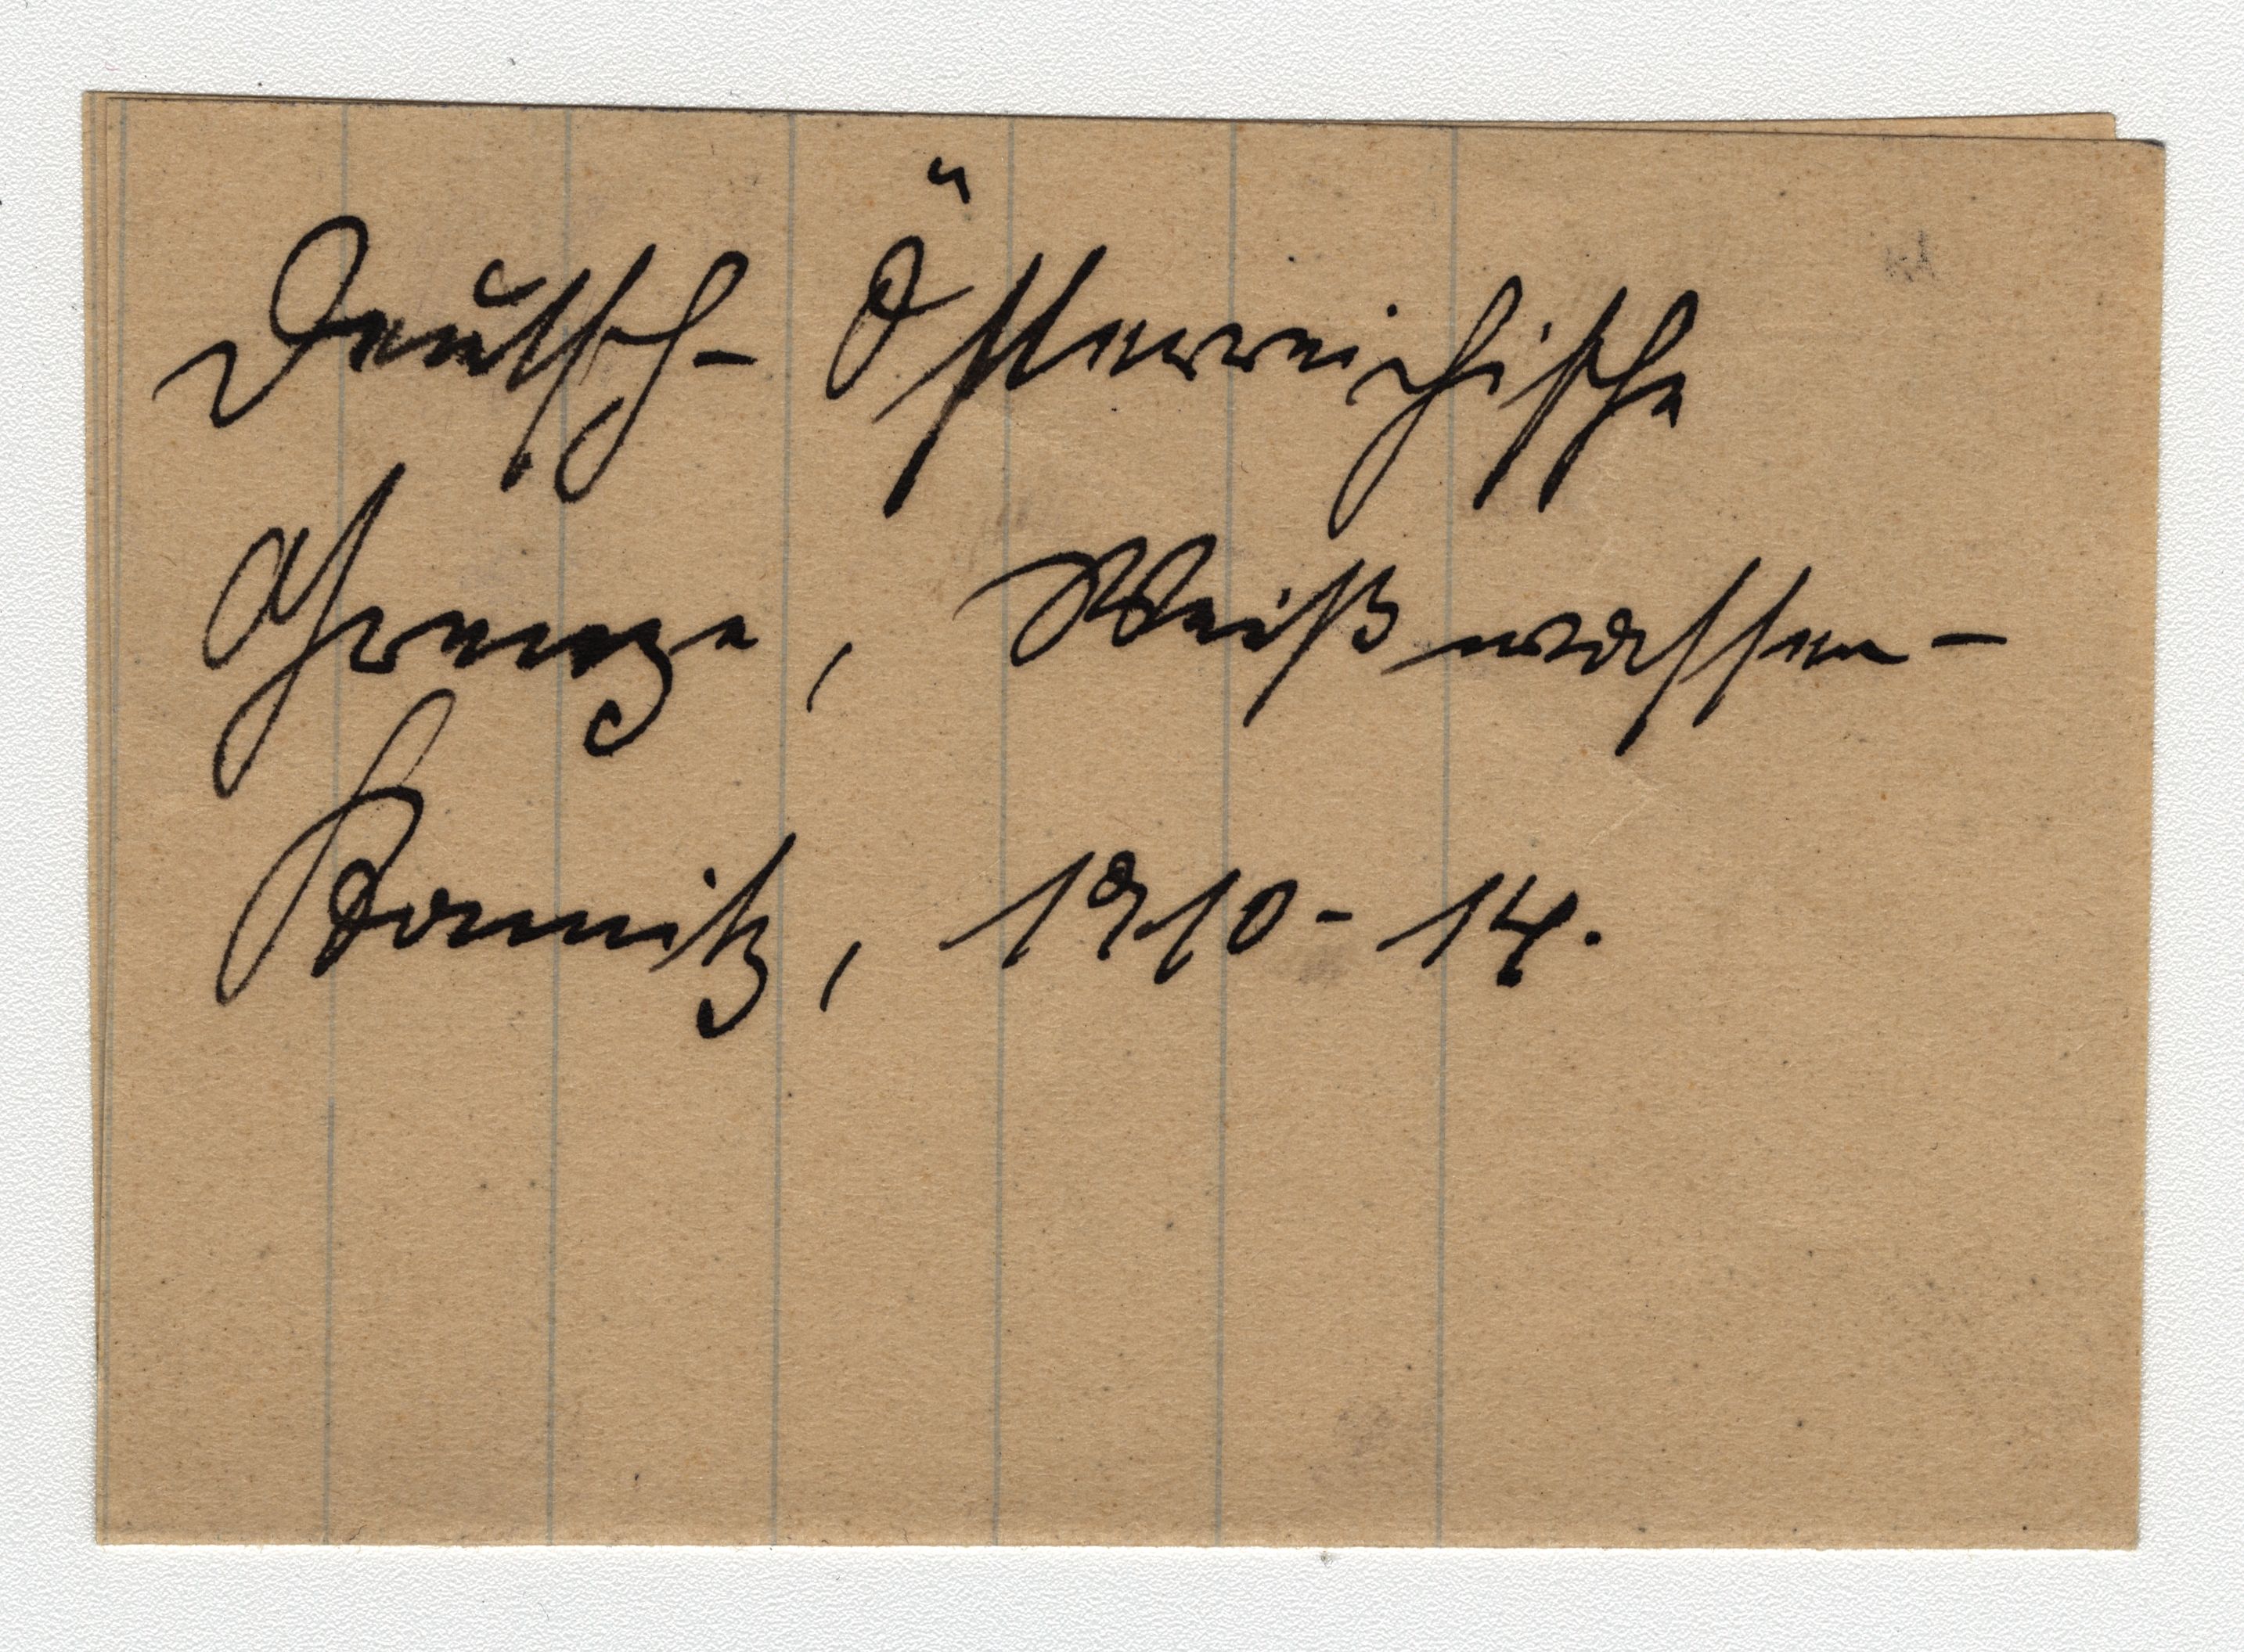 Deutsch-Österreichische
Grenze, Weißwasser-
Kamnitz, 1910-14.